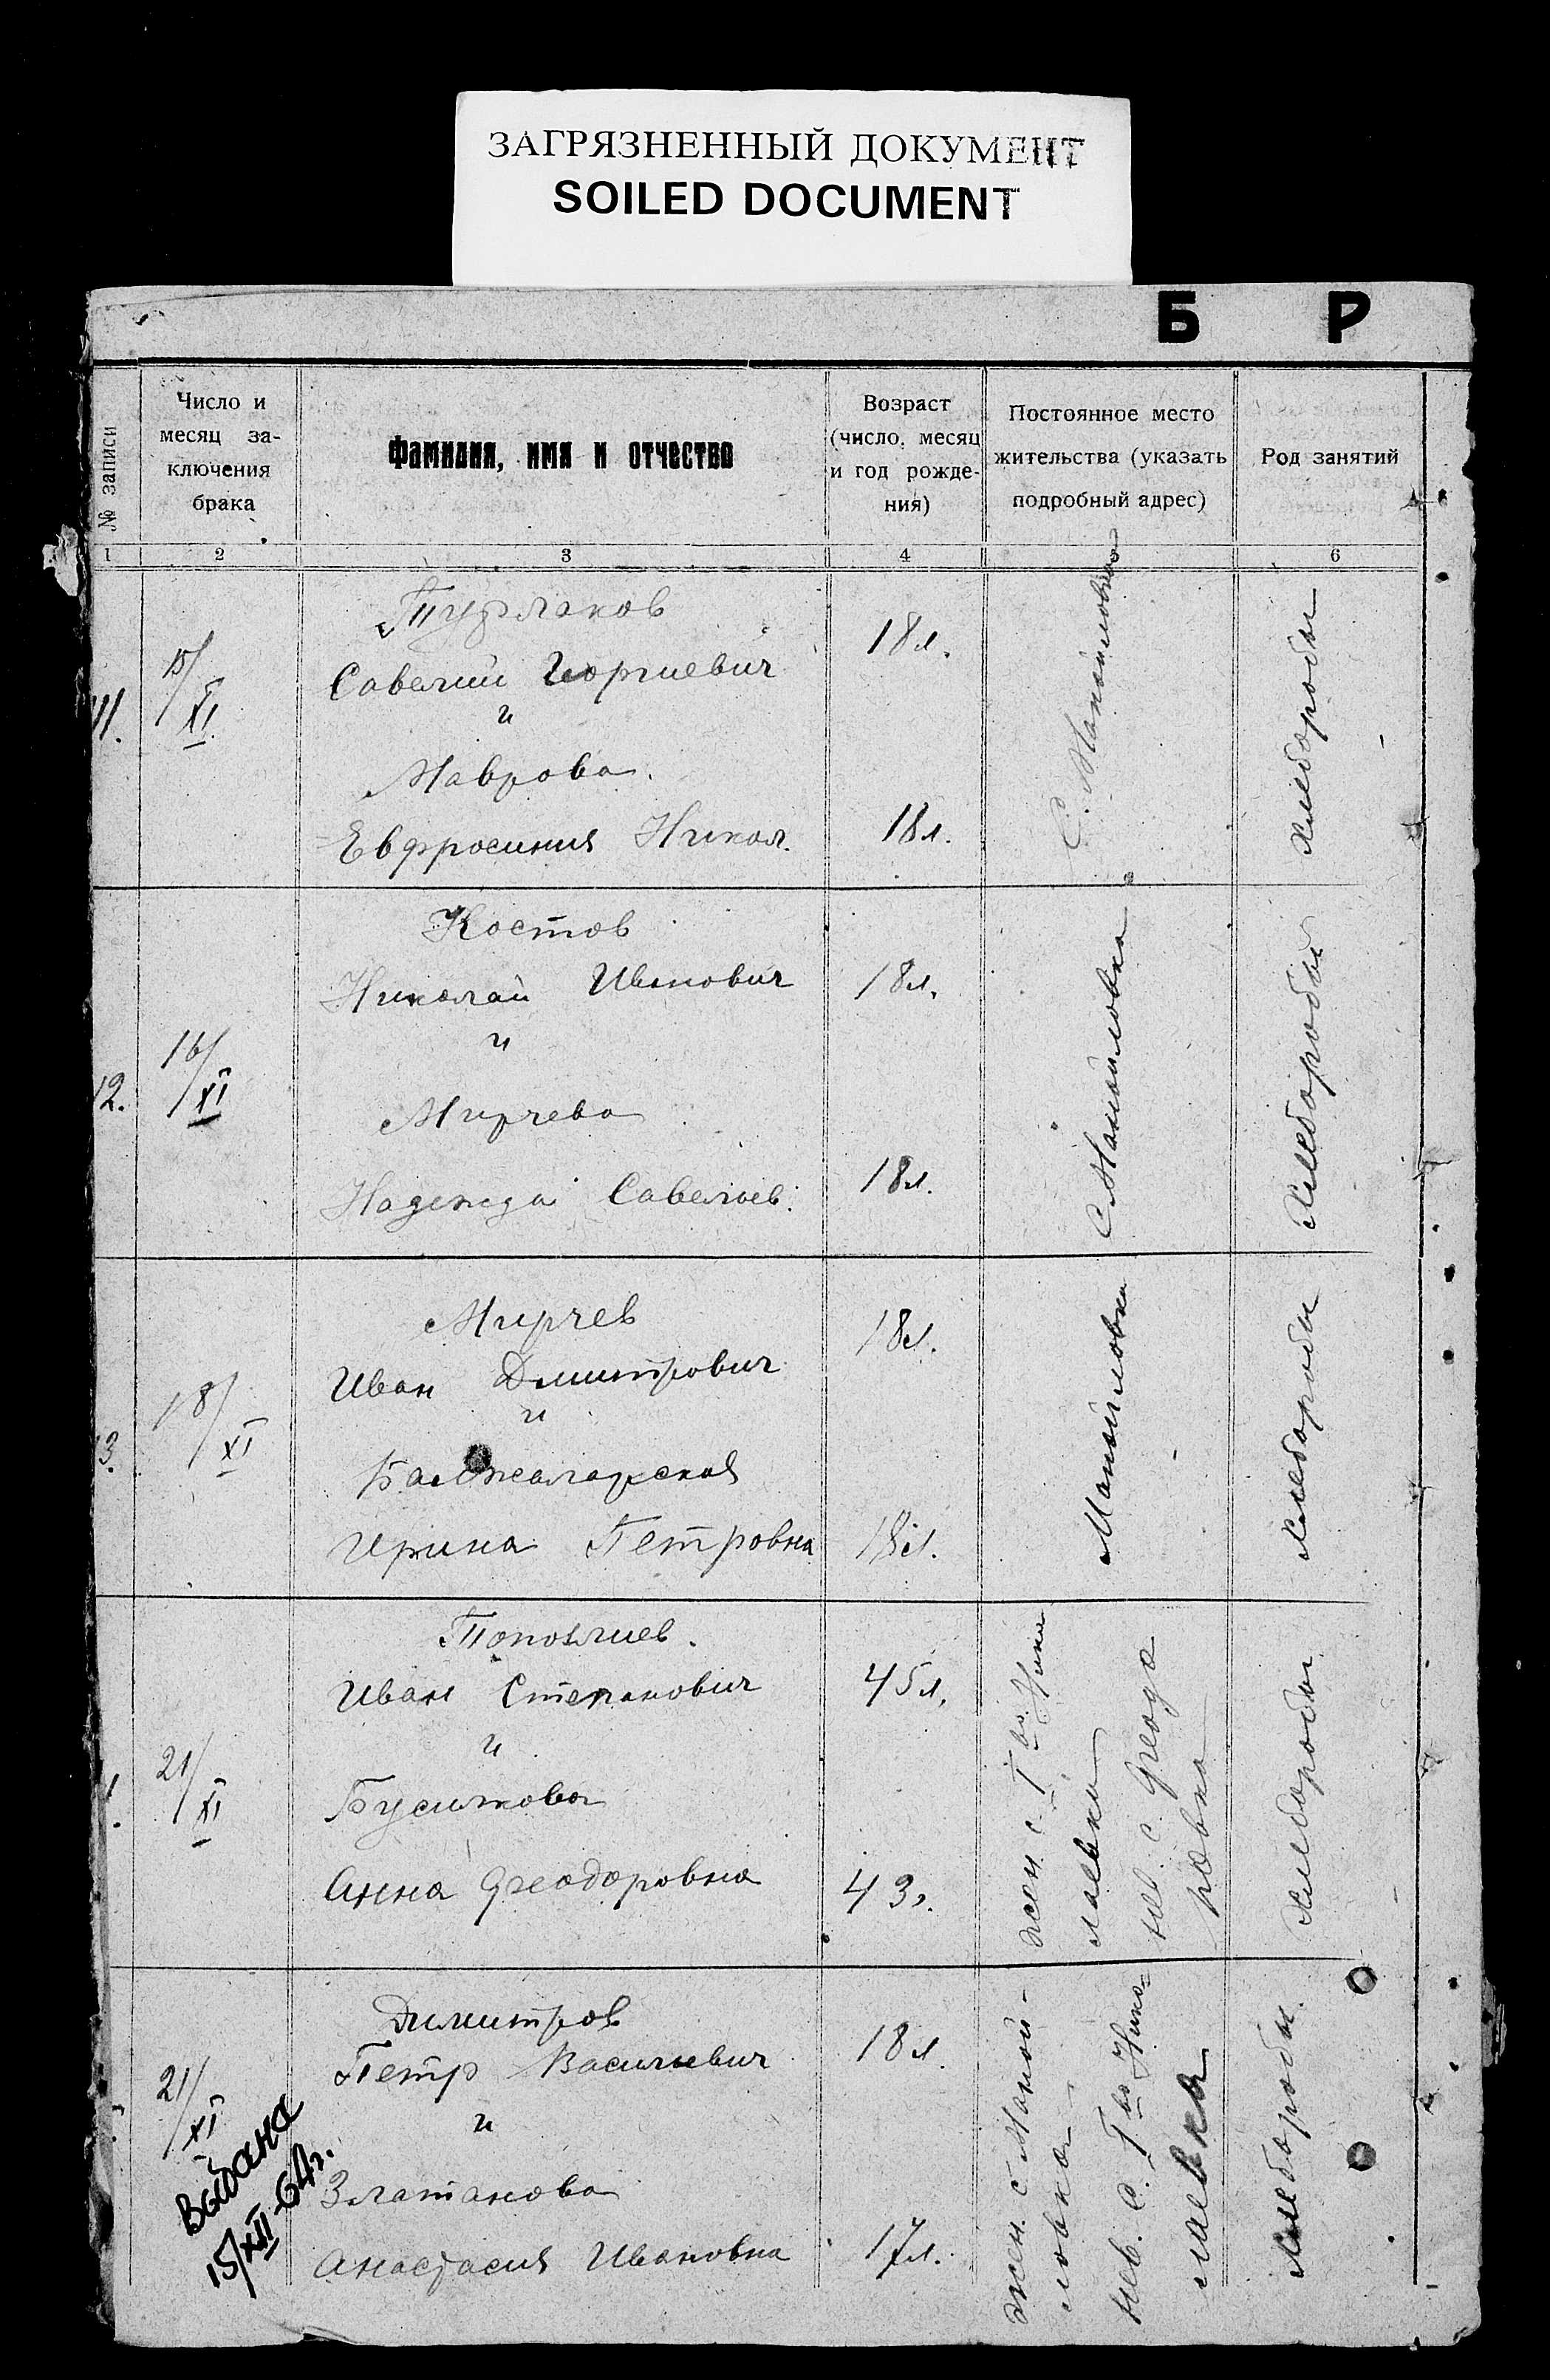 ЗАГРЯЗНЕННЫЙ ДОКУМЕНТ
SOILED DOCUMENT
Б Р
№ записи
Число и
месяц за-
ключения
брака
Фамилия, имя и отчество
Возраст
(число, месяц
и год рожде-
ния)
Постоянное место
жительства (указать
подробный адрес)
Род занятий
1 2 3 4 6
11.
15/XI
Турлаков
Савелий Георгиевич
и
Маврова
Евфросиния Никол.
18 л.
18 л.
С. Манойловка
Хлеборобы
12.
16/XI
Костов
Николай Иванович
и
Мирчева
Надежда Савельев.
18 л.
18 л.
С. Манойловка
Хлеборобы
3.
18/XI
Мирчев
Иван Дмитрович
и
Ирина Петровна
18 л.
18 л.
Манойловка
Хлеборобы
21/XI
Иван Степанович
и
Анна Феодоровна
45 л.
43 г.
жен. с. Т во Нико
лаевка
нев. с. Феодо
ровка
Хлеборобы
21/XI
Димитров
Петр Васильевич
и
Златанова
Анастасия Ивановна
18 л.
17 л.
жен. с Маной-
ловка
нев. с. Т во Нико-
лаевка
Хлеборобы
Выдана
15/XII-64г.